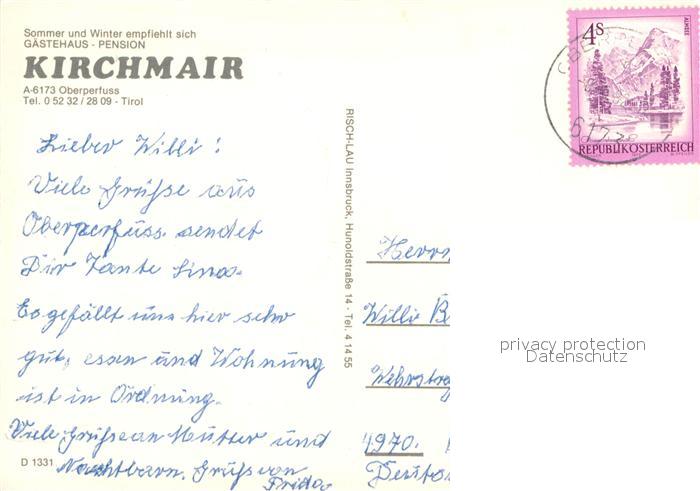 Sommer und Winter empfiehlt sich
GÄSTEHAUS - PENSION
KIRCHMAIR
A-6173 Oberperfuss
Tel. 0 52 32 / 28 09 - Tirol
Lieber Willi!
Viele Grüße aus
Oberperfuss sendet
Dir Tante Lina.
Es gefällt uns hier sehr
gut, essen und Wohnung
ist in Ordnung.
Viele Grüße an Mutter und
Nachbarn. Grüße von
Frida
D 1331
RISCH-LAU Innsbruck, Hunoldstraße 14 - Tel. 4 14 55
4S
ALMSEE
REPUBLIK ÖSTERREICH
OBER
6173
Herrn
Willi B
Wehrstra
4970.
Deuts
privacy protection
Datenschutz